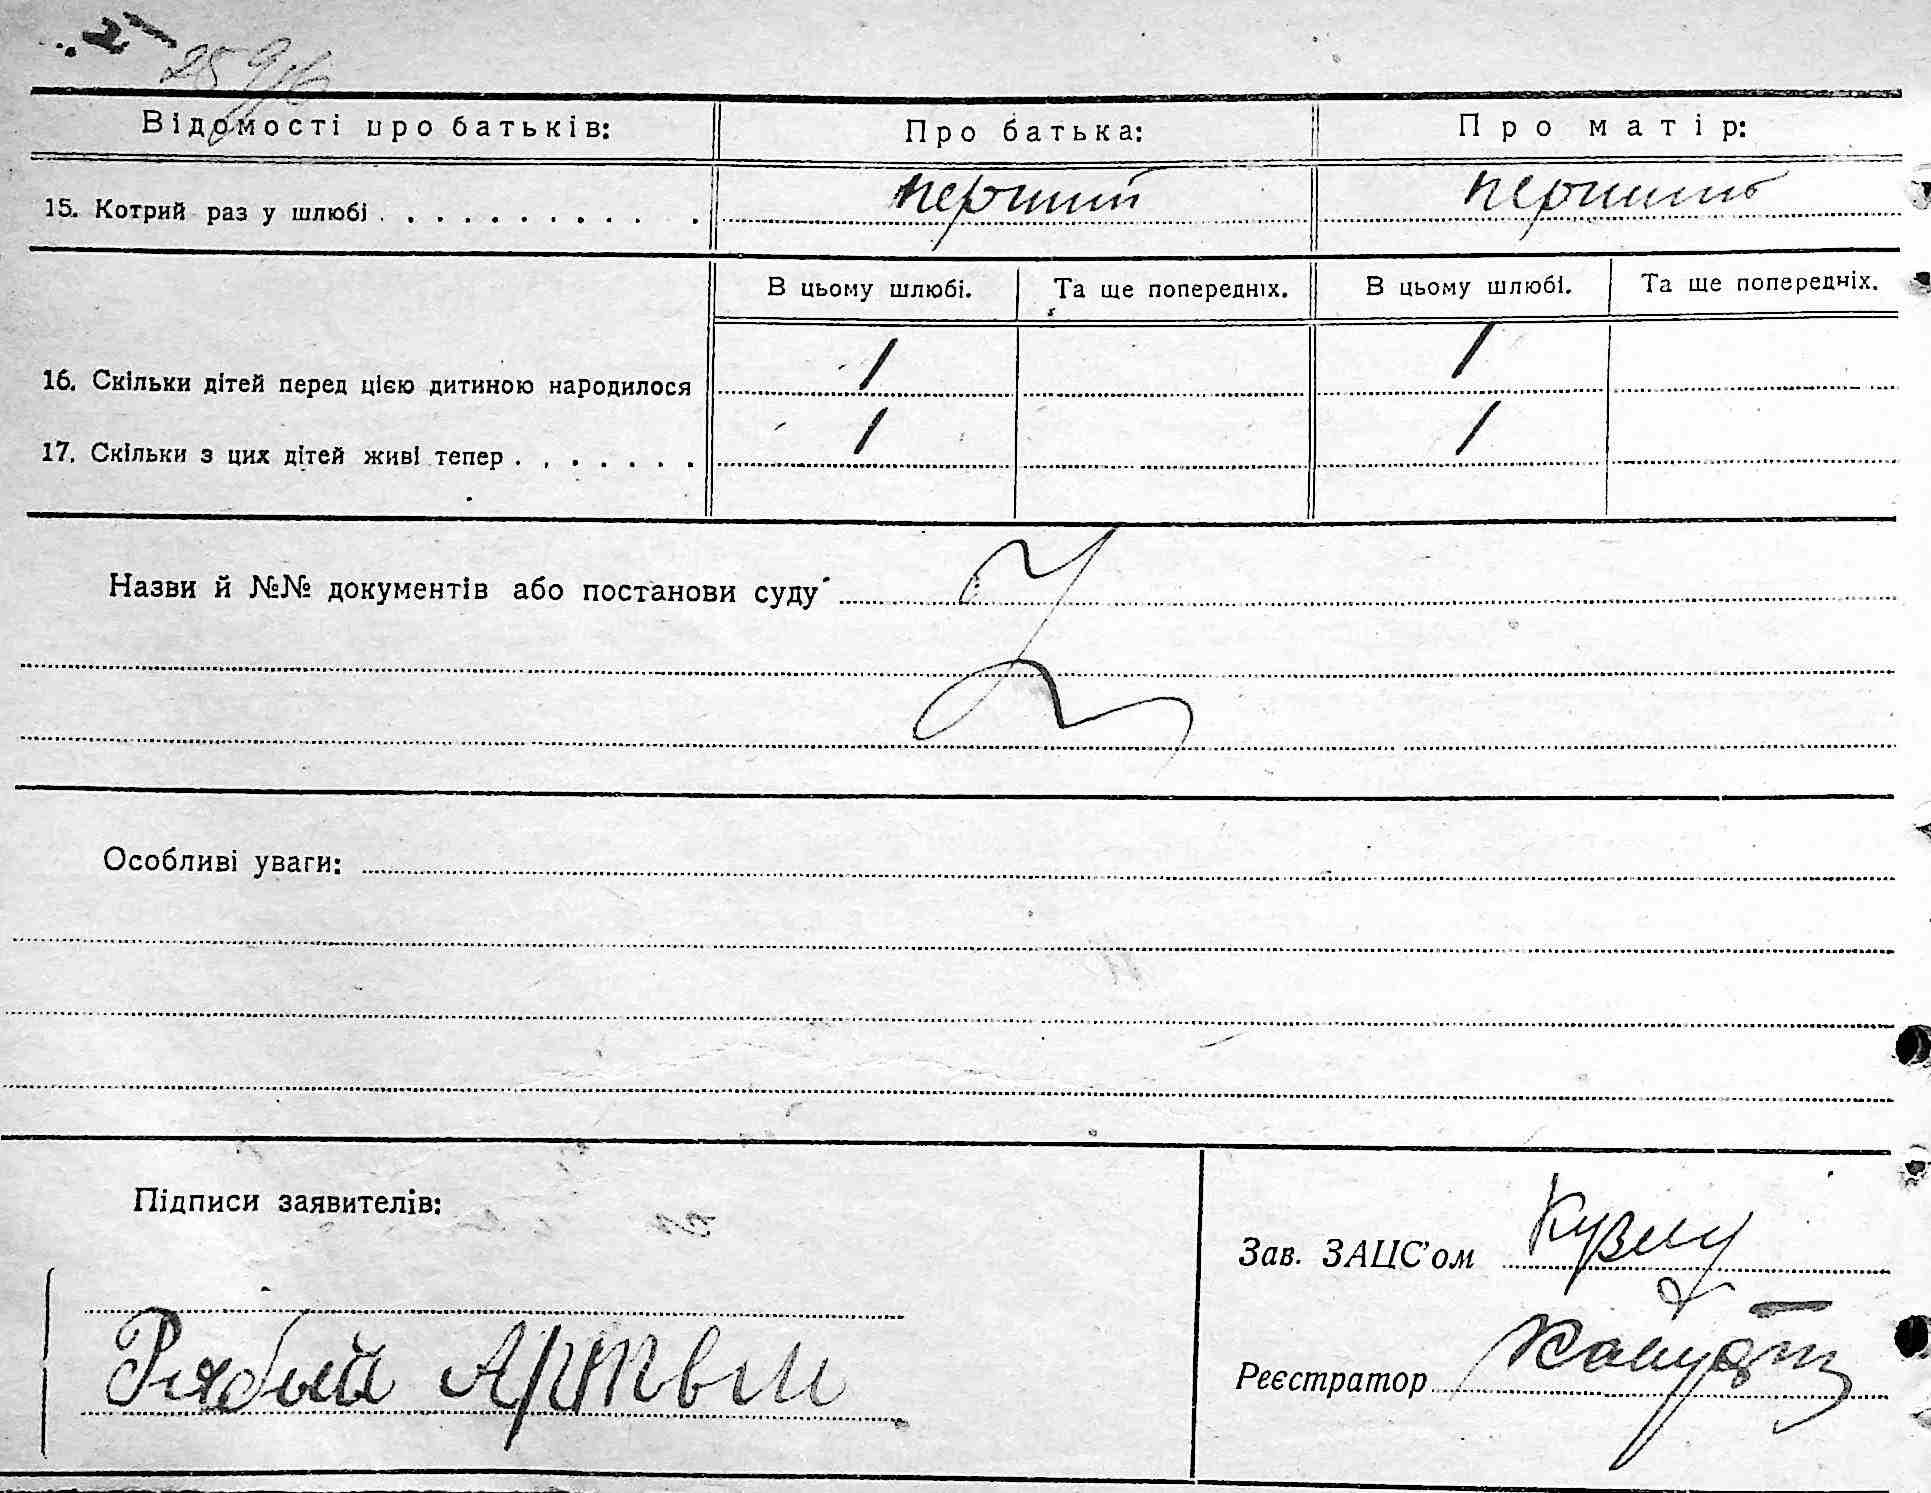 Відомості про батьків: Про батька: Про матір:
15. Котрий раз у шлюбі . . . . . . . . . . . . перший перший
В цьому шлюбі. Та ще попередніх. В цьому шлюбі. Та ще попередніх.
16. Скільки дітей перед цією дитиною народилося 1 1
17. Скільки з цих дітей живі тепер . . . . . . . 1 1
Назви й №№ документів або постанови суду
Особливі уваги:
Підписи заявителів:
Зав. ЗАЦС'ом
Рябый Артвм
Реєстратор